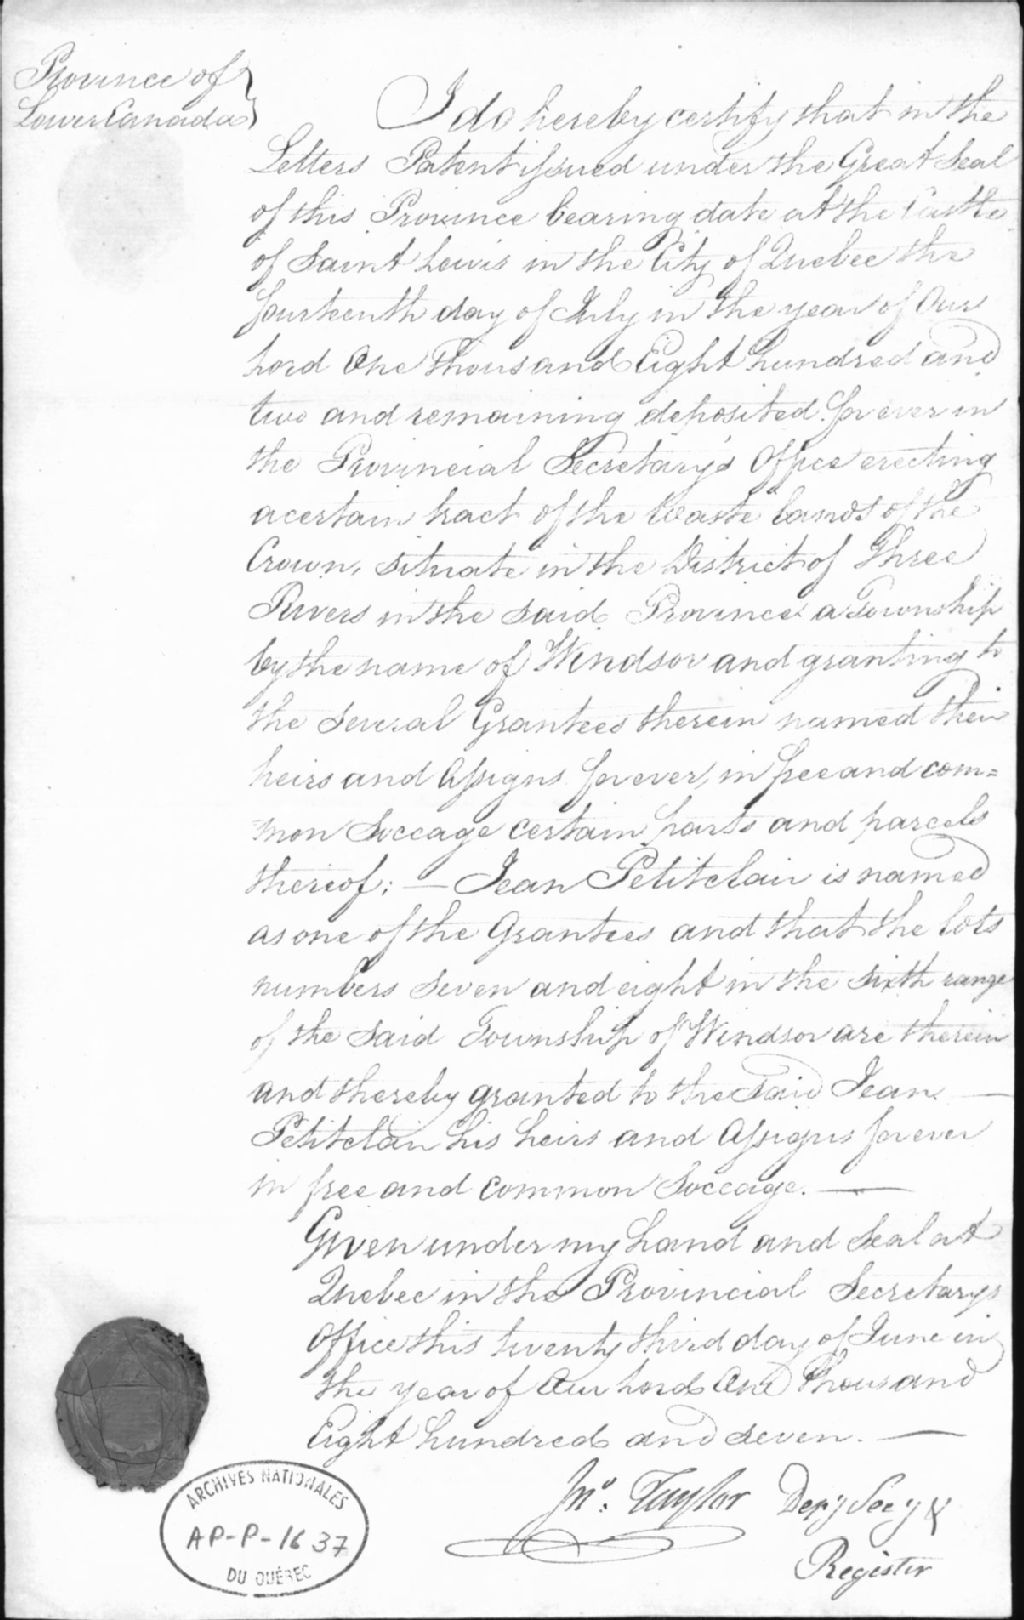 Province of
Lower Canada
I do hereby certify that in the
Letters Patent issued under the Great Seal
of this Province bearing date at the Castle
of Saint Lewis in the City of Quebec the
fourteenth day of July in the year of Our
Lord One Thousand Eight hundred and
two and remaining deposited for ever in
the Provincial Secretary's Office erecting
a certain tract of the Waste Lands of the
Crown, situate in the District of Three
Rivers in the said Province a Township
by the name of Windsor and granting to
the several Grantees therein named their
heirs and Assigns for ever, in free and com=
mon Soccage certain parts and parcels
thereof; — Jean Petitclair is named
as one of the Grantees and that the lots
numbers seven and eight in the sixth range
of the said Township of Windsor are therein
and thereby granted to the said Jean —
Petitclair his heirs and Assigns for ever
in free and common Soccage. —
Given under my hand and Seal at
Quebec in the Provincial Secretarys
Office this twenty third day of June in
the year of Our Lord One Thousand
Eight hundred and seven. —
Jnº. Taylor Depy Secy &
Register
ARCHIVES NATIONALES
AP-P-1637
DU QUÉBEC